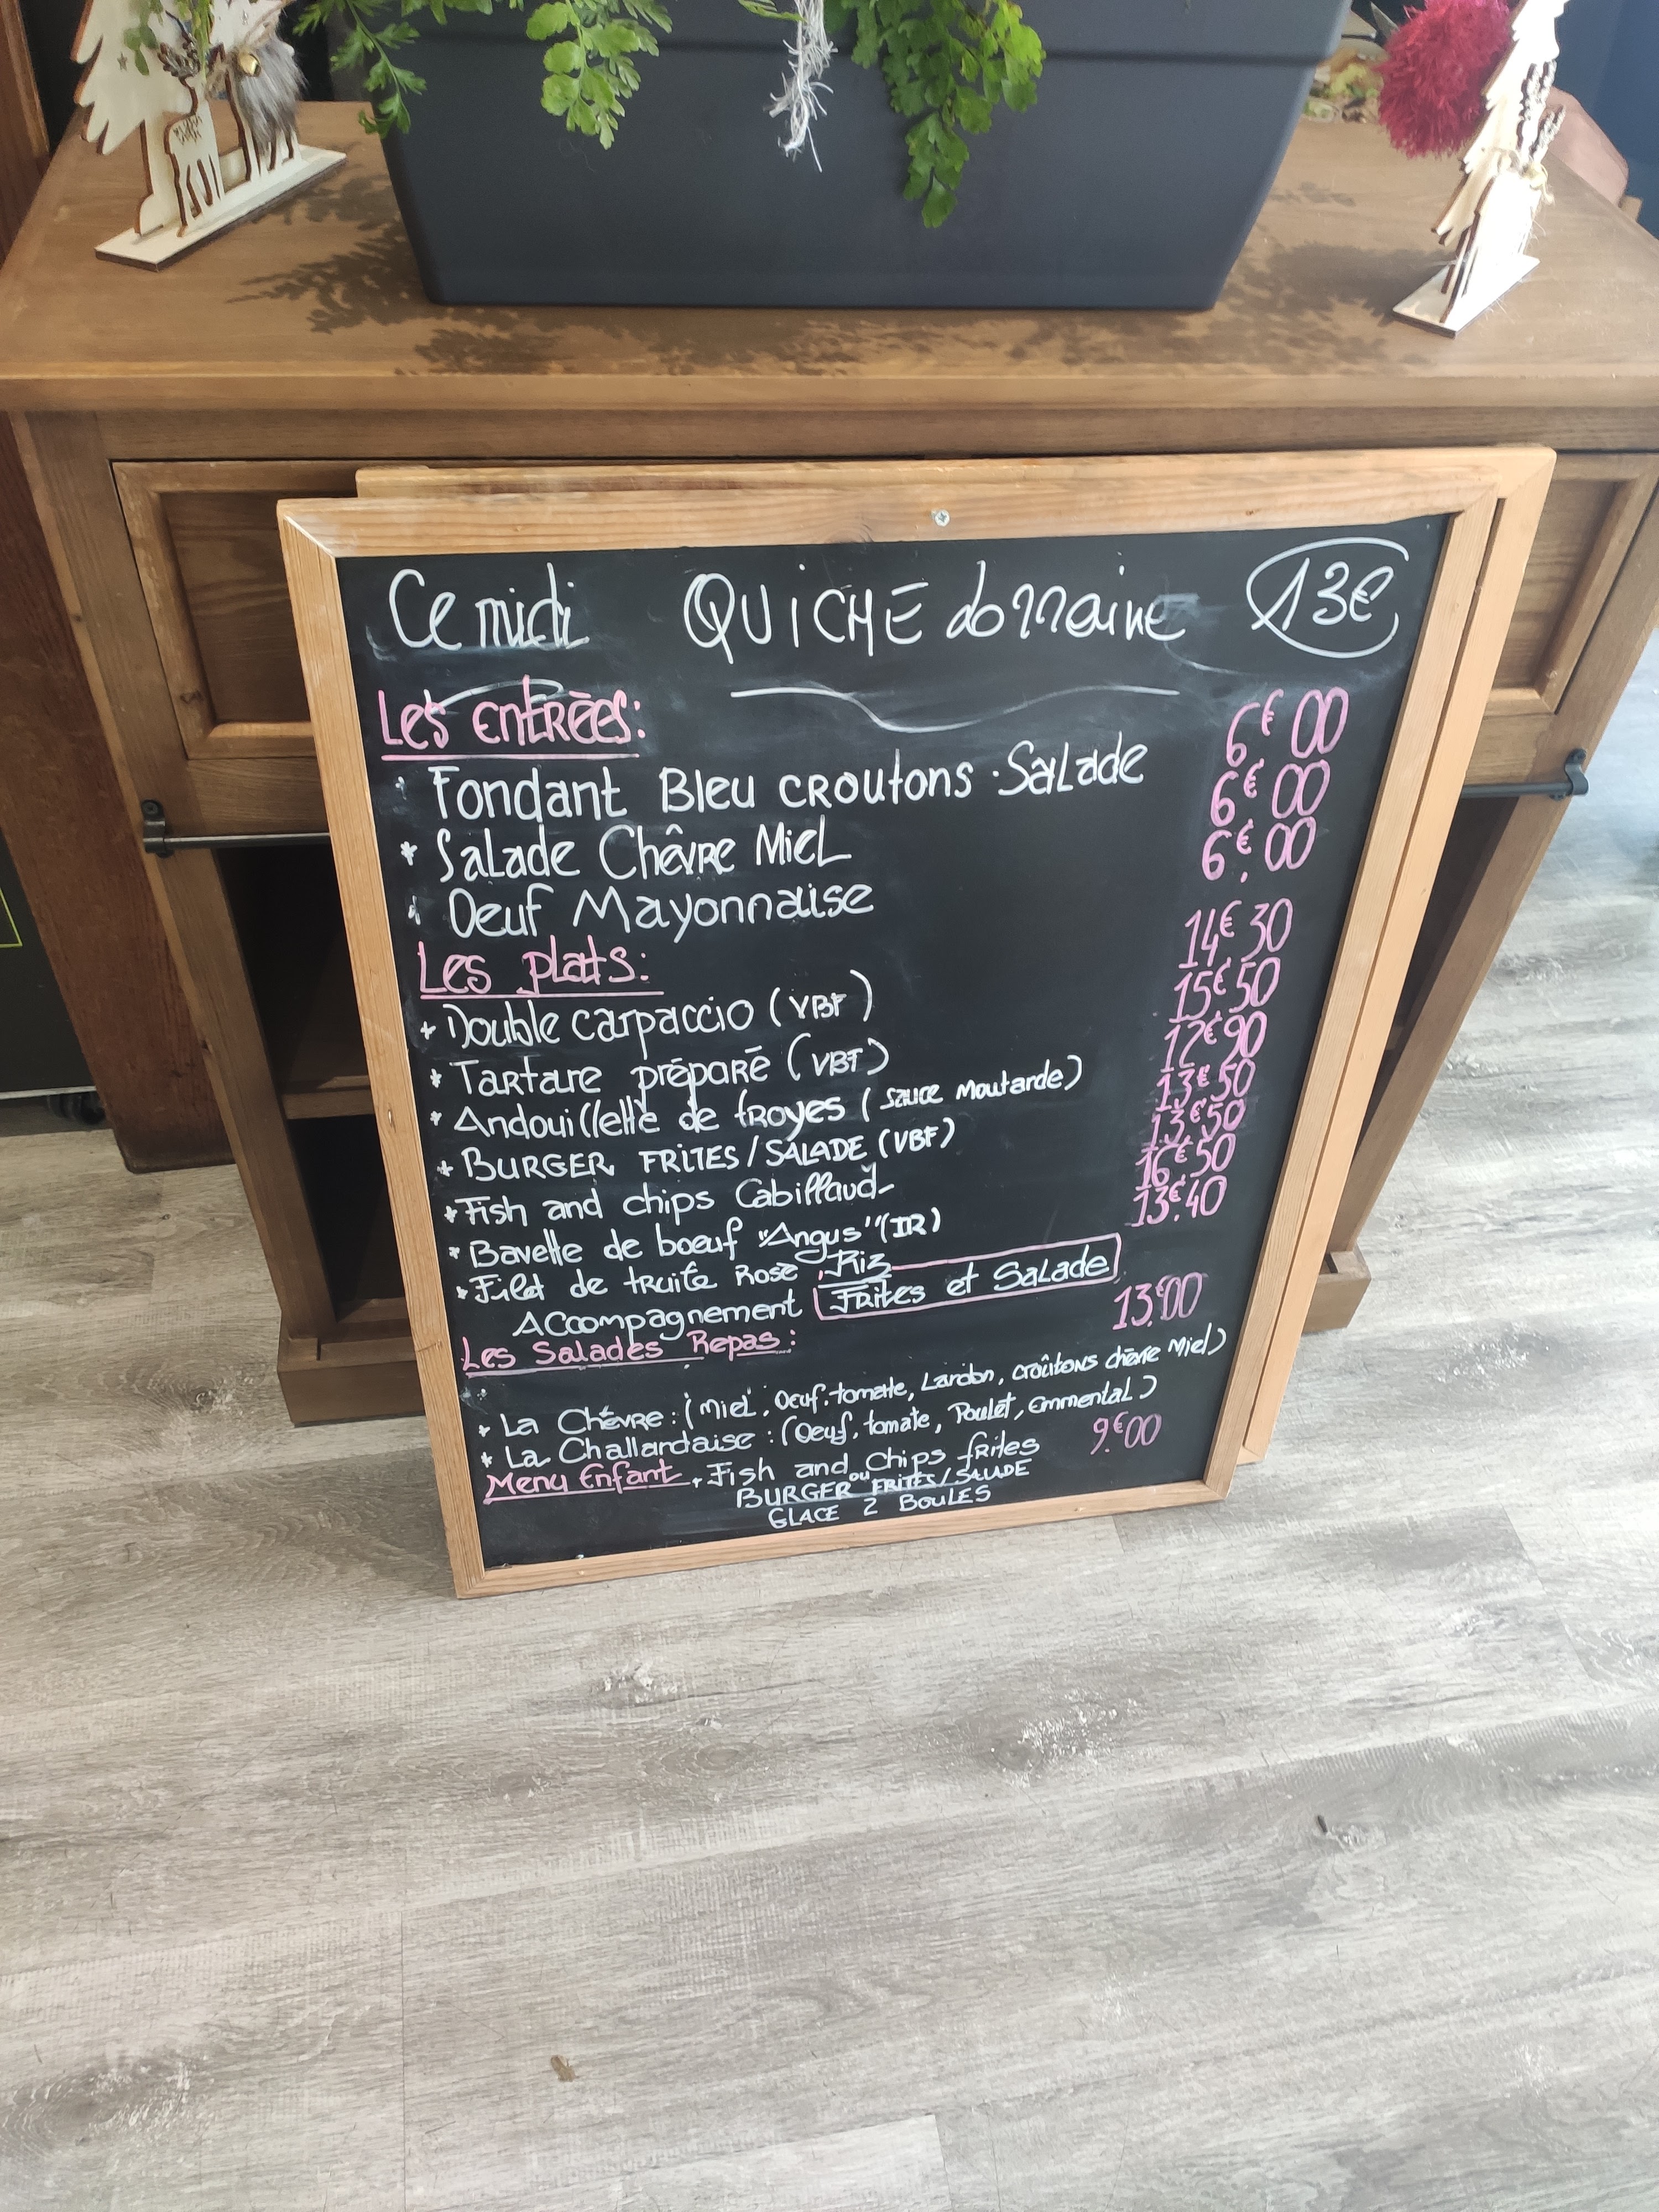 Ce midi QUICHE lorraine 13€
Les entrées:
* Fondant Bleu croutons . Salade 6€00
* Salade Chêvre Miel 6€00
* Oeuf Mayonnaise 6€00
Les plats:
* Double carpaccio (VBF) 14€30
* Tartare préparé (VBF) 15€50
* Andouillette de troyes (sauce Moutarde) 12€90
* BURGER FRITES/SALADE (VBF) 13€50
* Fish and chips Cabillaud 13€50
* Bavette de boeuf "Angus" (IR) 16€50
* Filet de truite Rose Riz 13€40
ACcompagnement Frites et Salade
Les Salades Repas: 13€00
* La Chévre: (Miel, Oeuf, tomate, Lardon, croûtons chèvre Miel)
* La Challandaise: (Oeuf, tomate, Poulet, emmental)
Menu Enfant * Fish and Chips frites 9€00
ou
BURGER FRITES/SALADE
GLACE 2 BOULES